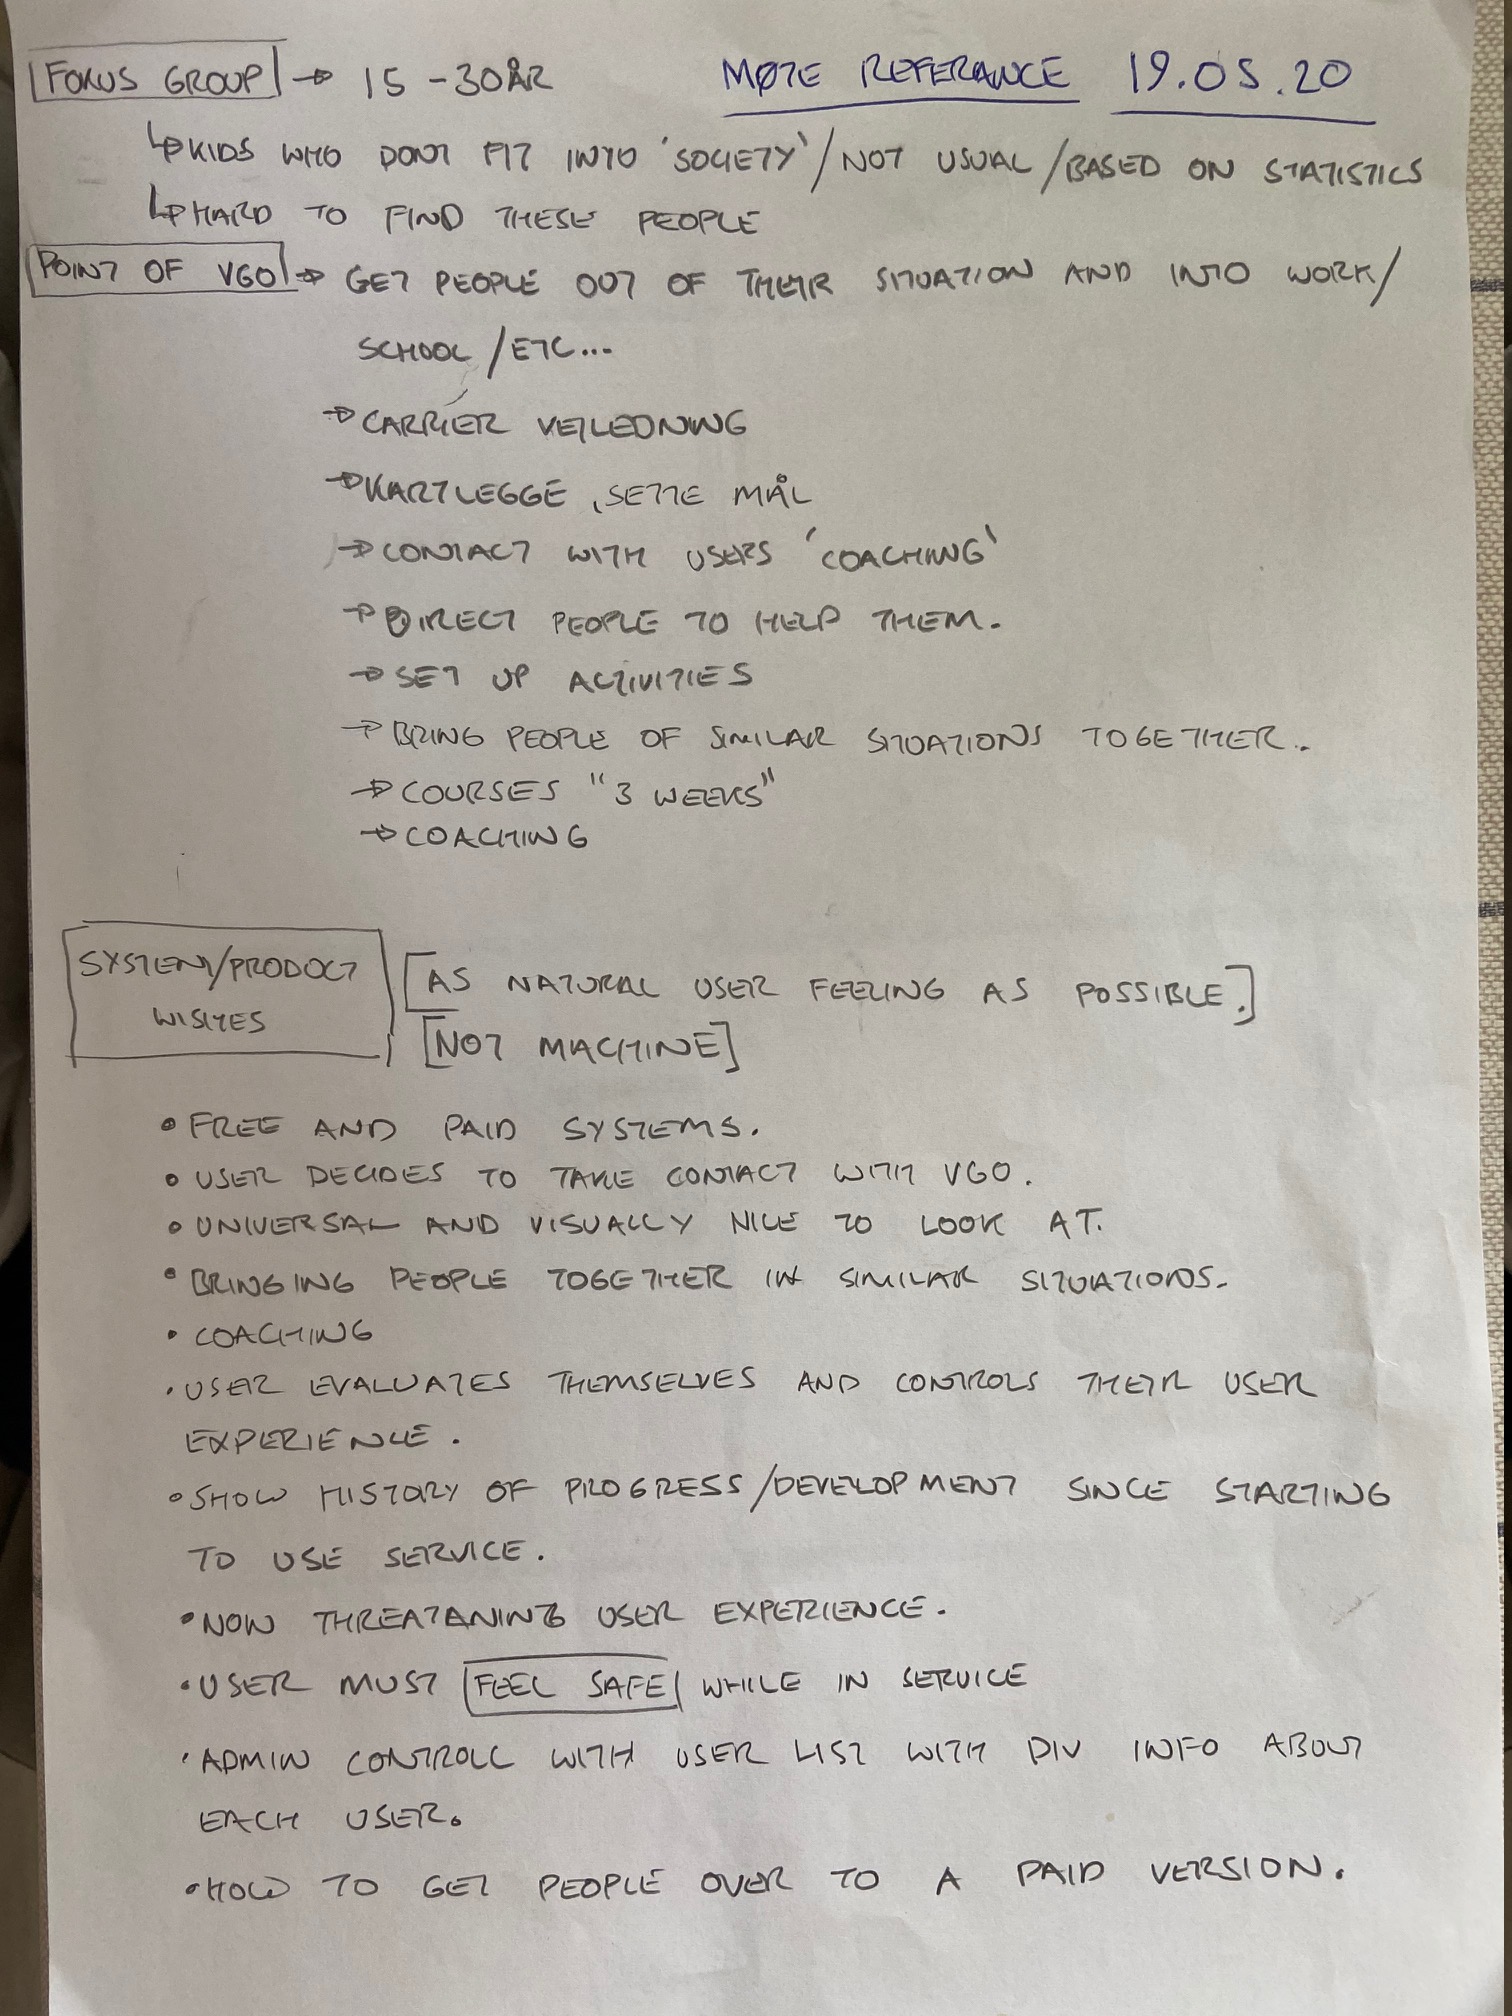 FOKUS GROUP → 15 - 30 ÅR
MØTE REFERANCE 19.05.20
↳ KIDS WHO DONT FIT INTO 'SOCIETY' / NOT USUAL / BASED ON STATISTICS
↳ HARD TO FIND THESE PEOPLE
POINT OF VGO → GET PEOPLE OUT OF THEIR SITUATION AND INTO WORK/
SCHOOL / ETC...
→ CARRIER VEILEDNING
→ KARTLEGGE, SETTE MÅL
→ CONTACT WITH USERS 'COACHING'
→ DIRECT PEOPLE TO HELP THEM.
→ SET UP ACTIVITIES
→ BRING PEOPLE OF SIMILAR SITUATIONS TOGETHER.
→ COURSES "3 WEEKS"
→ COACHING
SYSTEM/PRODUCT
WISHES
[AS NATURAL USER FEELING AS POSSIBLE.]
[NOT MACHINE]
• FREE AND PAID SYSTEMS.
• USER DECIDES TO TAKE CONTACT WITH VGO.
• UNIVERSAL AND VISUALLY NICE TO LOOK AT.
• BRINGING PEOPLE TOGETHER IN SIMILAR SITUATIONS.
• COACHING
• USER EVALUATES THEMSELVES AND CONTROLS THEIR USER
EXPERIENCE.
• SHOW HISTORY OF PROGRESS/DEVELOPMENT SINCE STARTING
TO USE SERVICE.
• NON THREATANING USER EXPERIENCE.
• USER MUST FEEL SAFE WHILE IN SERVICE
• ADMIN CONTROLL WITH USER LIST WITH DIV INFO ABOUT
EACH USER.
• HOW TO GET PEOPLE OVER TO A PAID VERSION.